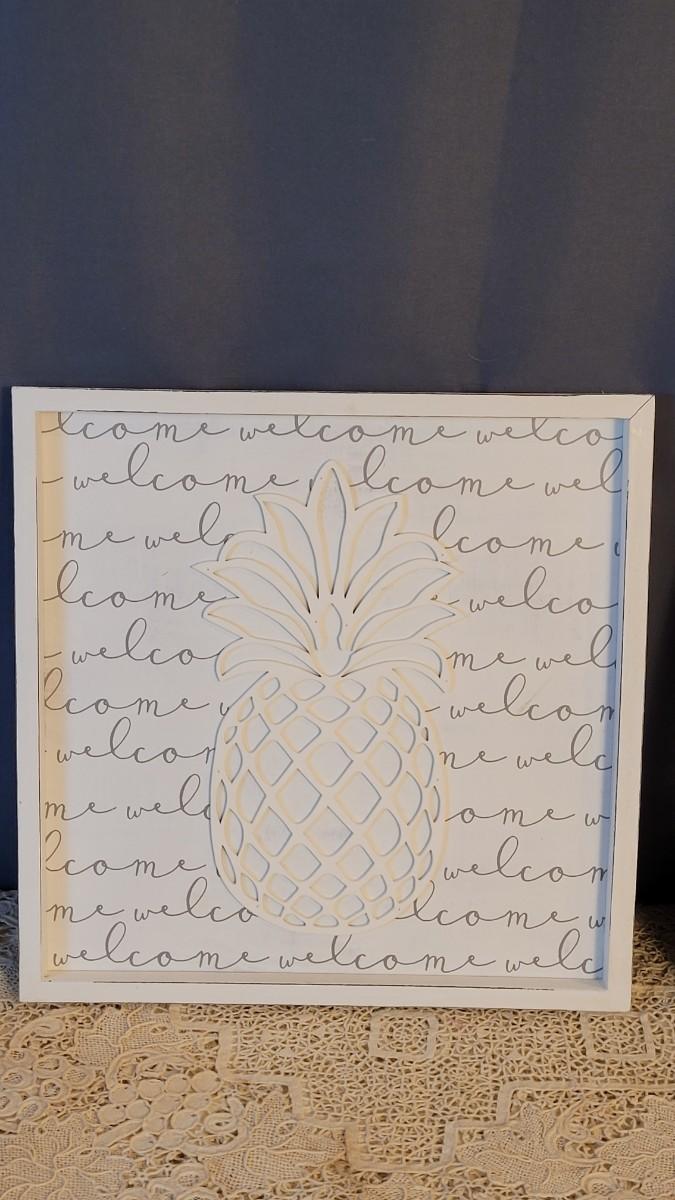 lcome welcome welco
welcome lcome wel
me welc lcome
lcome welco
welco me wel
lcome welcom
welcom me welc
me welc ome w
lcome welcom
me welco lcome w
welcome welcome welc